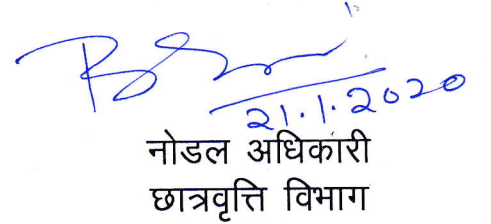 21.1.2020
नोडल अधिकारी
छात्रवृत्ति विभाग